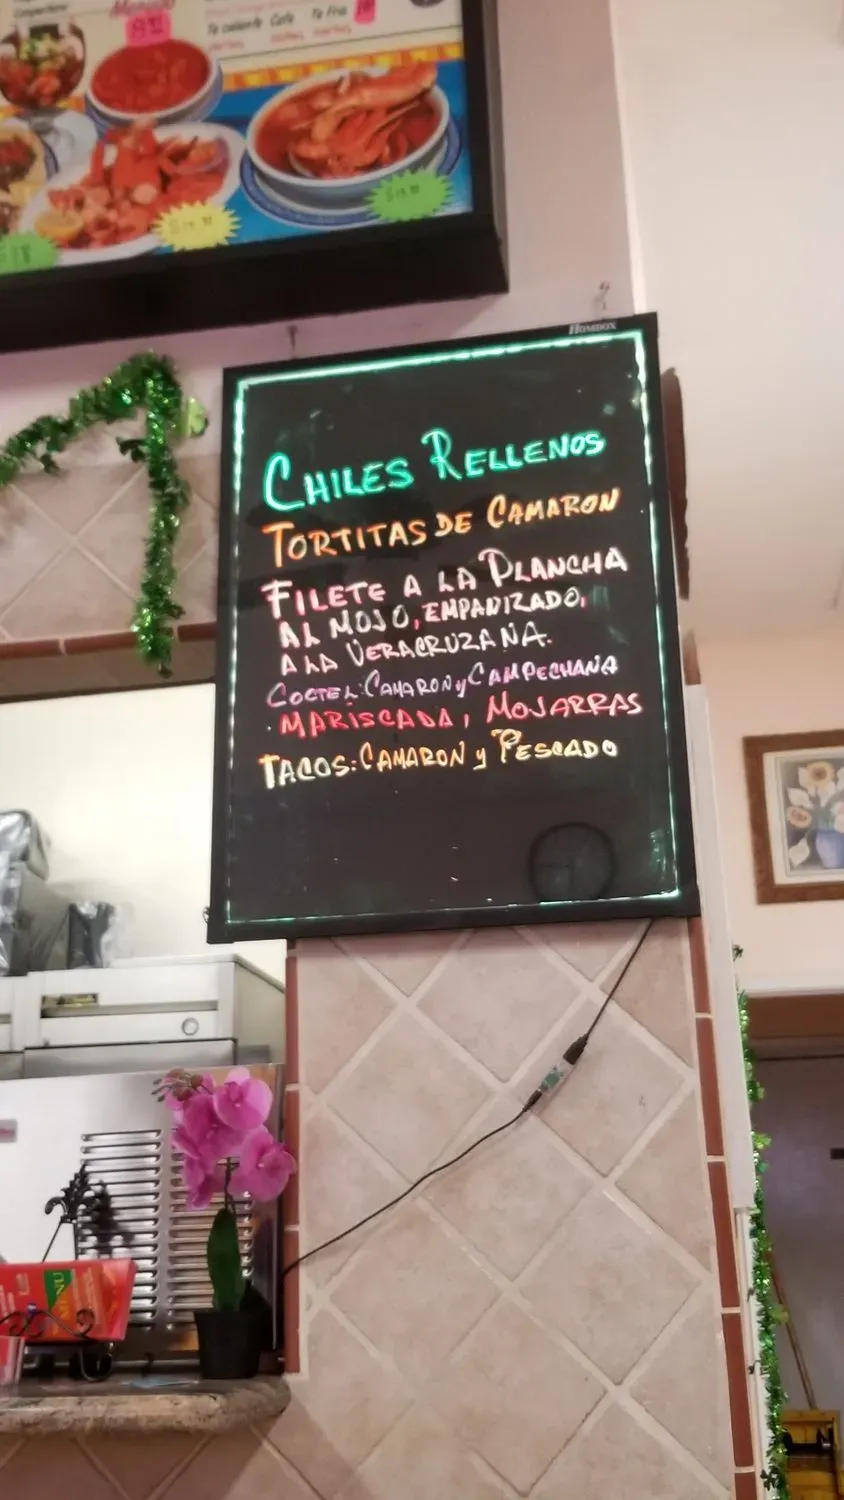 Te caliente Cafe Te Fria
HOMDOX
CHILES RELLENOS
TORTITAS DE CAMARON
FILETE A LA PLANCHA
AL MOJO, EMPANIZADO,
A LA VERACRUZANA.
COCTEL: CAMARON y CAMPECHANA
. MARISCADA, MOJARRAS
TACOS: CAMARON y PESCADO